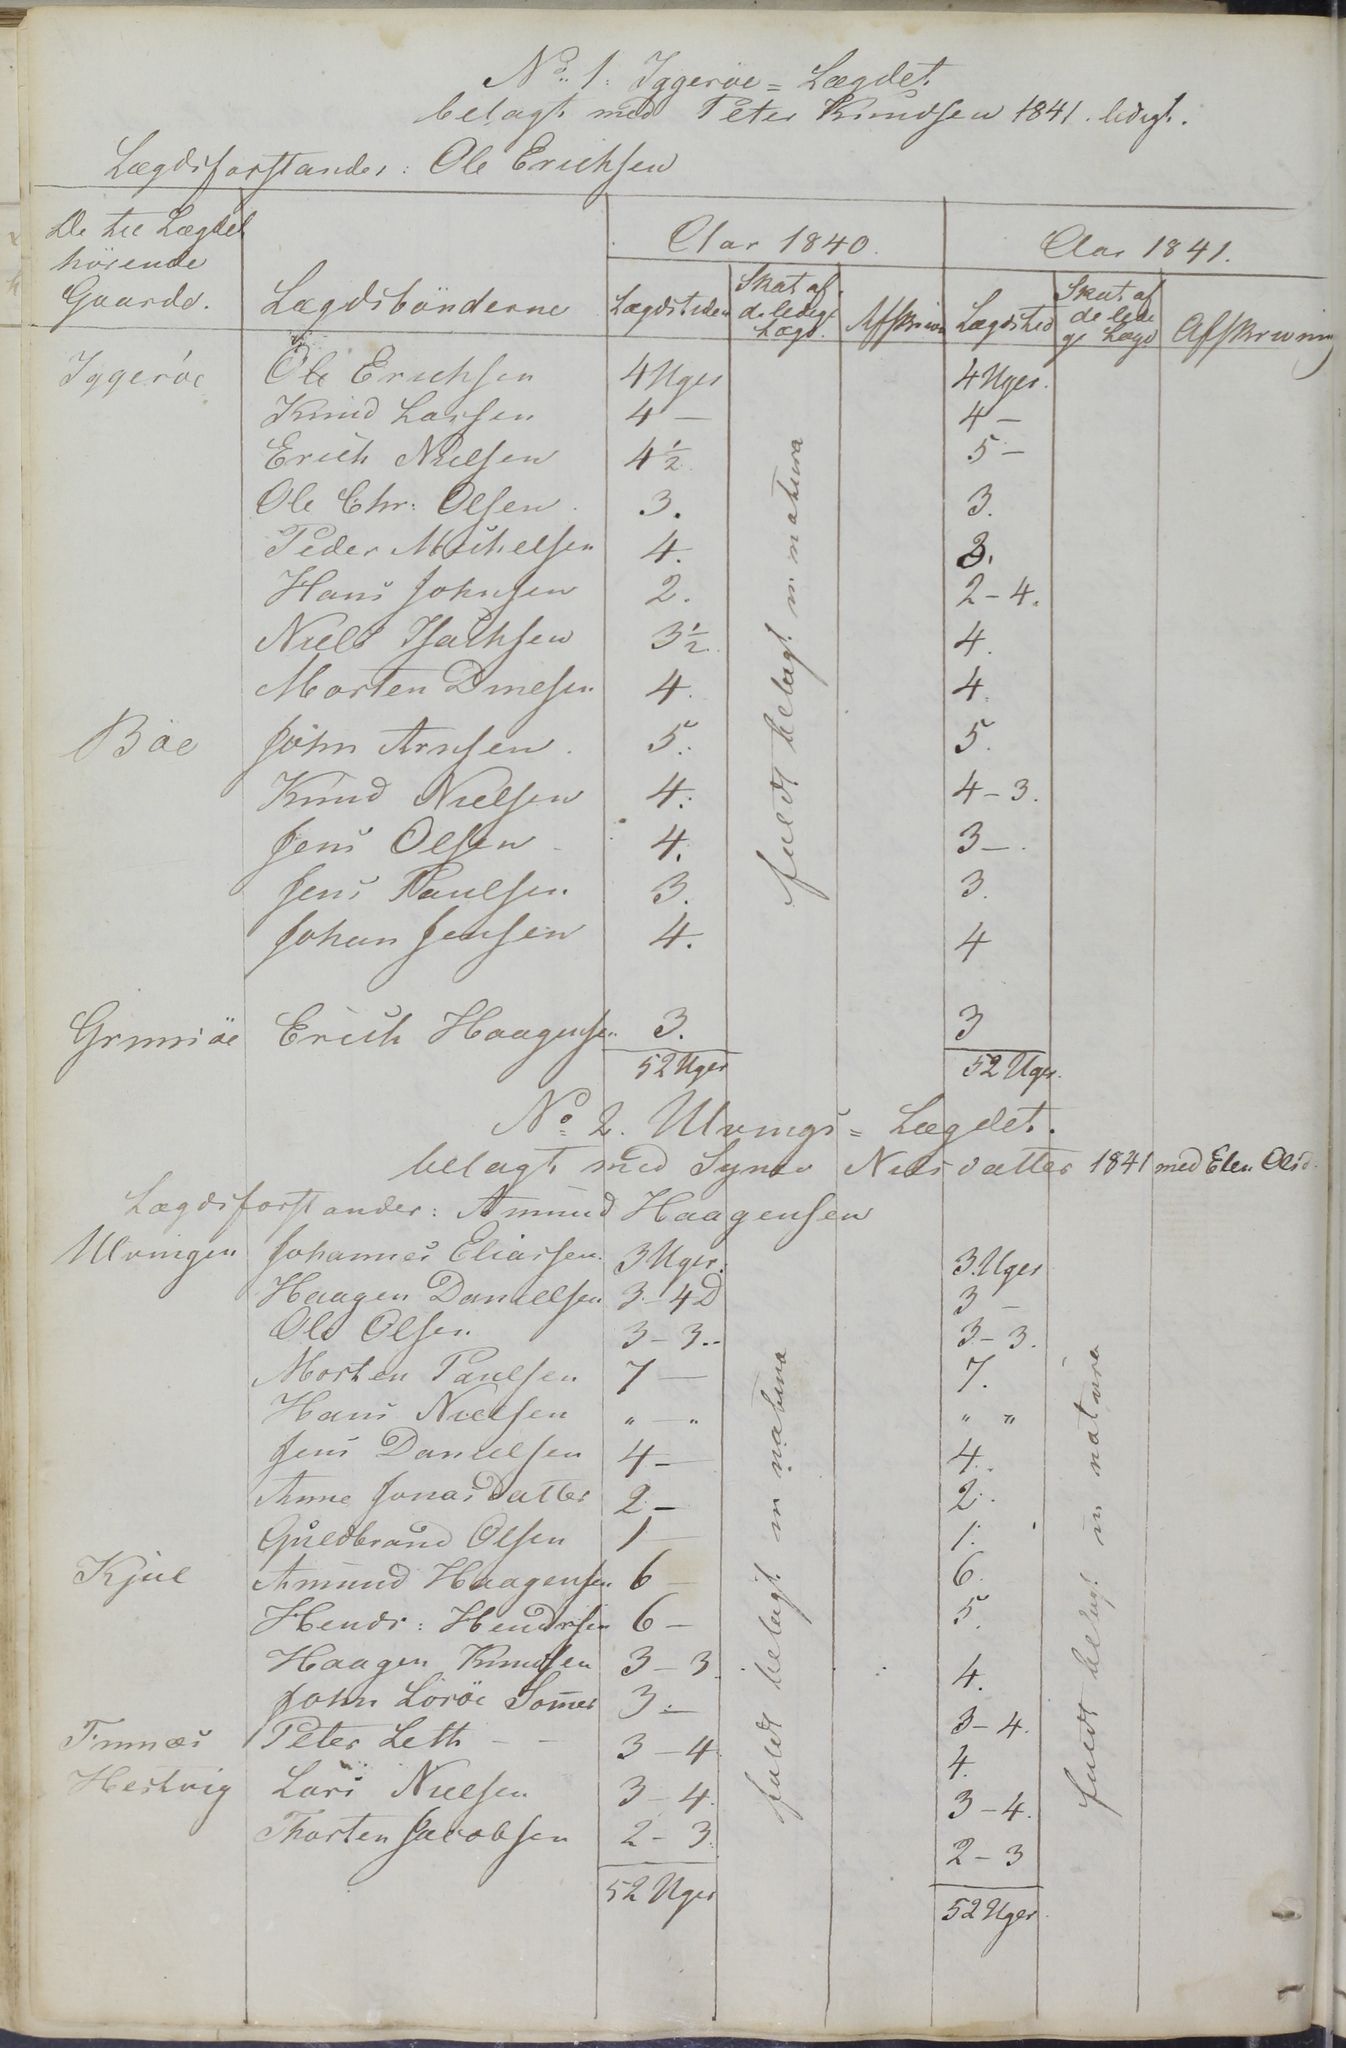 No. 1. Iggeröe = Lægdet.
belagt med Peter Knudsen 1841. ledigt.
Lægdsforstander: Ole Erichsen
De til Lægdet hörende Gaarde. Lægdsbönderne Aar 1840. Aar 1841.
Lægdstiden Skat af de ledige Lægd. Afskrivn Lægdstid Skat af de ledige Lægd Afskrivning
Iggeröe Ole Erichsen 4 Uger 4 Uger.
Knud Larsen 4 – 4 –
Erich Nielsen 4½ 5 –
Ole Chr: Olsen. 3. 3.
Peder Michelsen 4. 3.
Hans Johnsen 2. 2 – 4.
Niels Isachsen 3½ 4.
Morten Dinesen 4. 4.
Böe John Arnsen. 5. 5.
Knud Nielsen 4. 4 – 3.
Jens Olsen 4. 3 –.
Jens Paulsen 3. 3.
Johan Jensen 4. 4
fuldt belagt in natura
Grimsöe Erich Haagensen 3. 3
52 Uger 52 Uger.
No. 2. Ulvings = Lægdet.
belagt med Synev Nilsdatter 1841 med Elen Olsd.
Lægdsforstander: Amund Haagensen
Ulvingen Johannes Eliassen. 3 Uger. 3 Uger
Haagen Danielsen 3 – 4 D 3 –
Ole Olsen 3 – 3. – 3 – 3.
Morten Paulsen 7 — 7.
Hans Nielsen " – " " "
Jens Danielsen 4 – 4.
Anne Jonasdatter 2 – 2.
Guldbrand Olsen 1 — 1.
Kjul Amund Haagensen 6 – 6.
Hendr: Hendrsen 6 – 5.
Haagen Knudsen 3 – 3. 4.
John Loröe Somer 3 – 3 – 4.
Finnæs Peter Leth – – 3 – 4 4.
Hestvig Lars Nielsen 3 – 4. 3 – 4.
Thorten Jacobsen 2 – 3. 2 – 3
52 Uger 52 Uger.
fuldt belagt in natura
fuldt belagt in natura